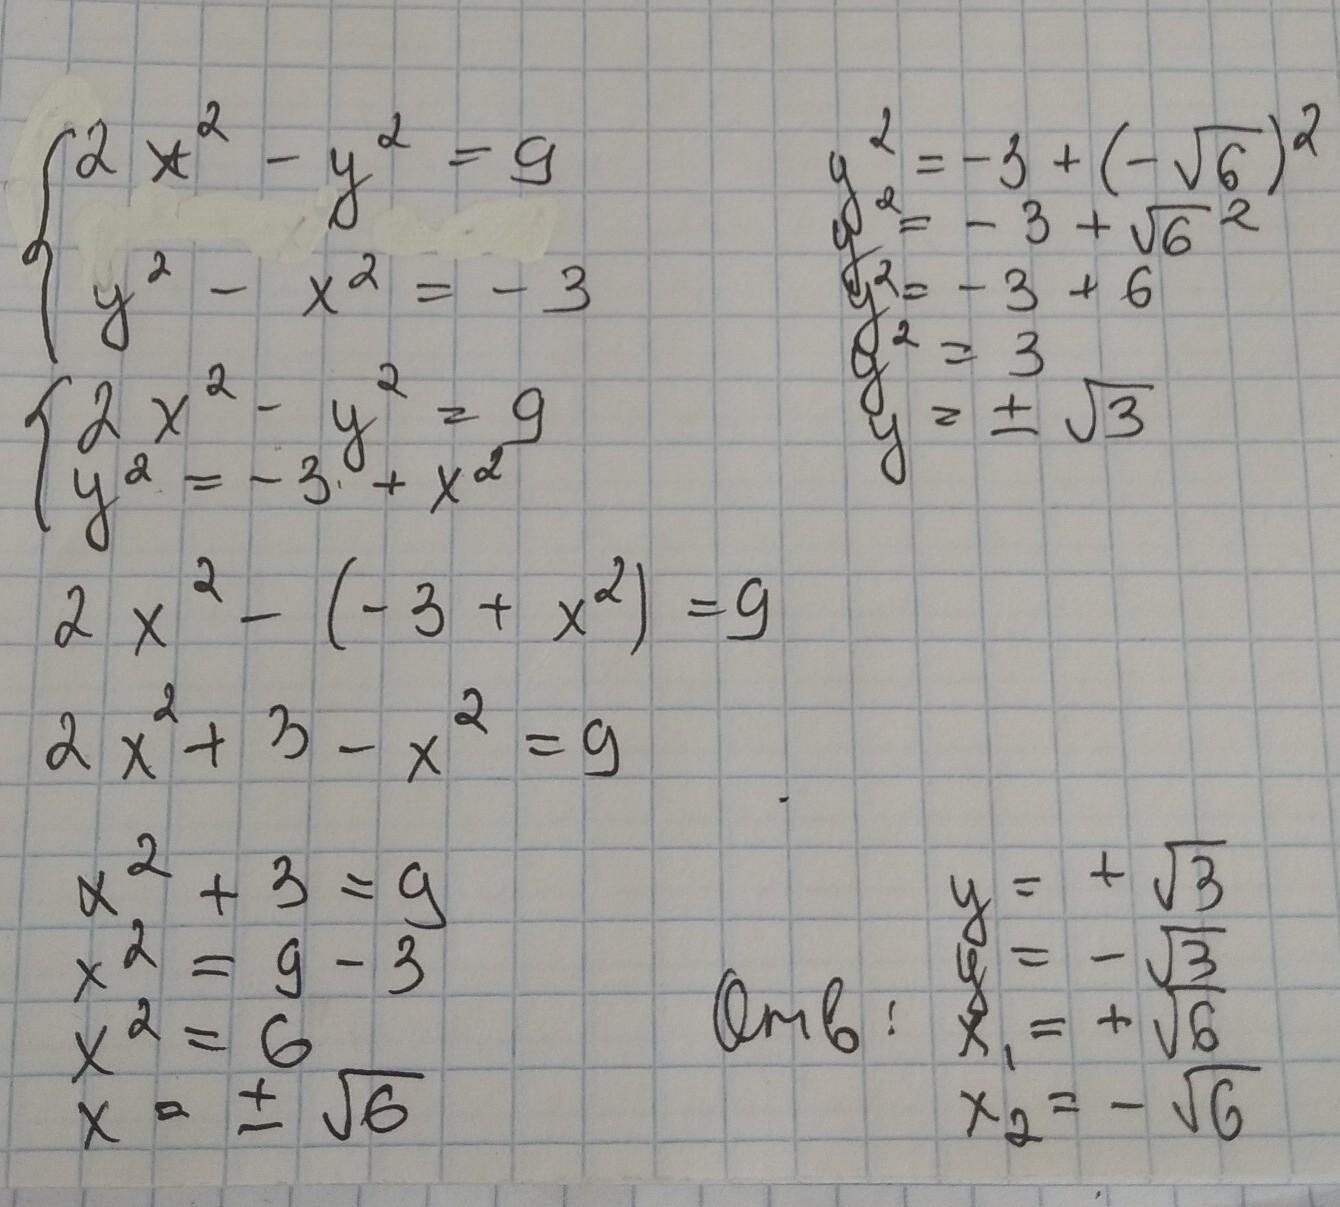 2x² - y² = 9
y² - x² = -3
2x² - y² = 9
y² = -3 + x²
2x² - (-3 + x²) = 9
2x² + 3 - x² = 9
x² + 3 = 9
x² = 9 - 3
x² = 6
x = ± √6
y² = -3 + (-√6)²
y² = -3 + √6²
y² = -3 + 6
y² = 3
y = ± √3
Отв:
y = + √3
y = - √3
x₁ = + √6
x₂ = - √6